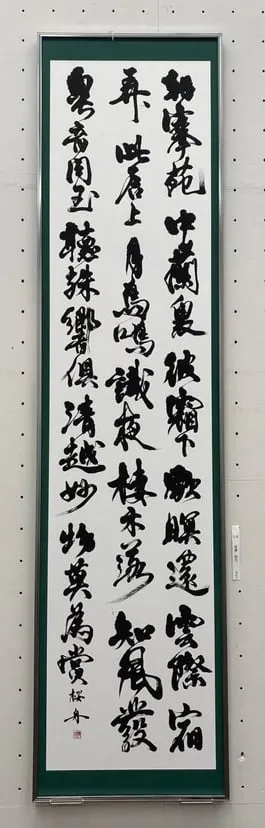 朝搴苑中蘭畏彼霜下歇暝還雲際宿
弄此石上月鳥鳴識夜棲木落知風發
異音同至聽殊響俱清越妙物莫為賞 桜舟